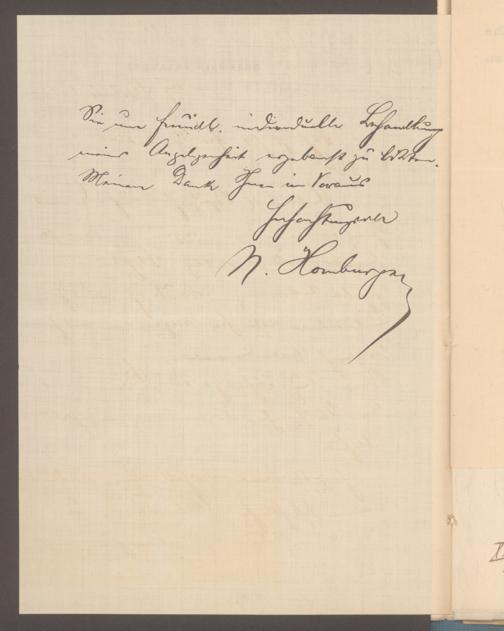 Sie um freundl. individuelle Behandlung
meiner Angelegenheit ergebenst zu bitten.
Meinen Dank Ihnen im Voraus
Hochachtungsvoll
N. Homburger